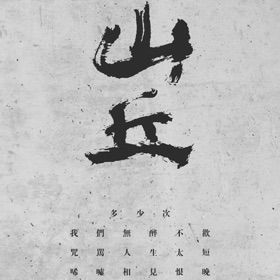 山丘
多少次
我們無醉不歡
咒罵人生太短
唏噓相見恨晚